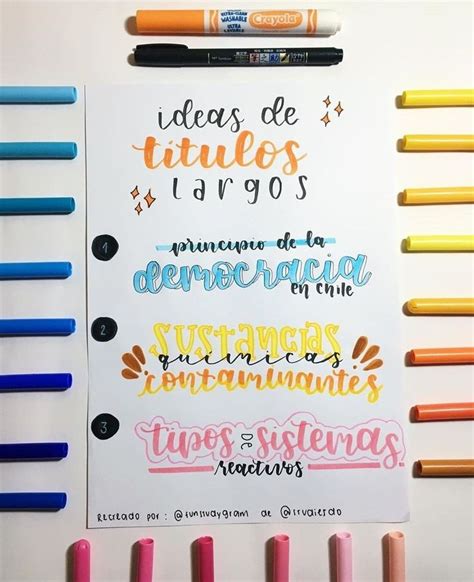 ULTRA-CLEAN
WASHABLE
ULTRA
LAVABLES
Crayola
ideas de
títulos
largos
1
principio de la
democracia
en chile
2
sustancias
químicas
contaminantes
3
tipos de sistemas
reactivos
Recreado por: @funnvaygram de @irvdierdo